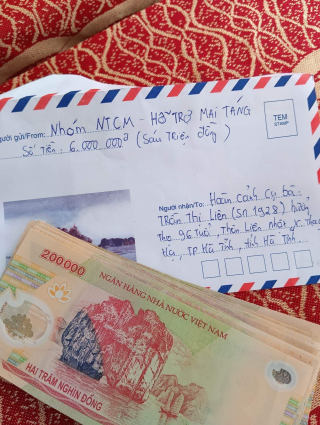 Người gửi/From: Nhóm NTCM - Hỗ TRỢ MAI TANG
Số Tiền: 6.000.000đ (Sáu Triệu đồng)
TEM
STAMP
Người nhận/To: Hoàn cảnh cụ bà:
Trần Thị Liên (Sn 1928) hưởng
Thọ 96 Tuổi, Thôn Liên Nhật, X. Thạch
Hạ, TP Hà Tĩnh, tỉnh Hà Tĩnh
200000
NGÂN HÀNG NHÀ NƯỚC VIỆT NAM
HAI TRĂM NGHÌN ĐỒNG